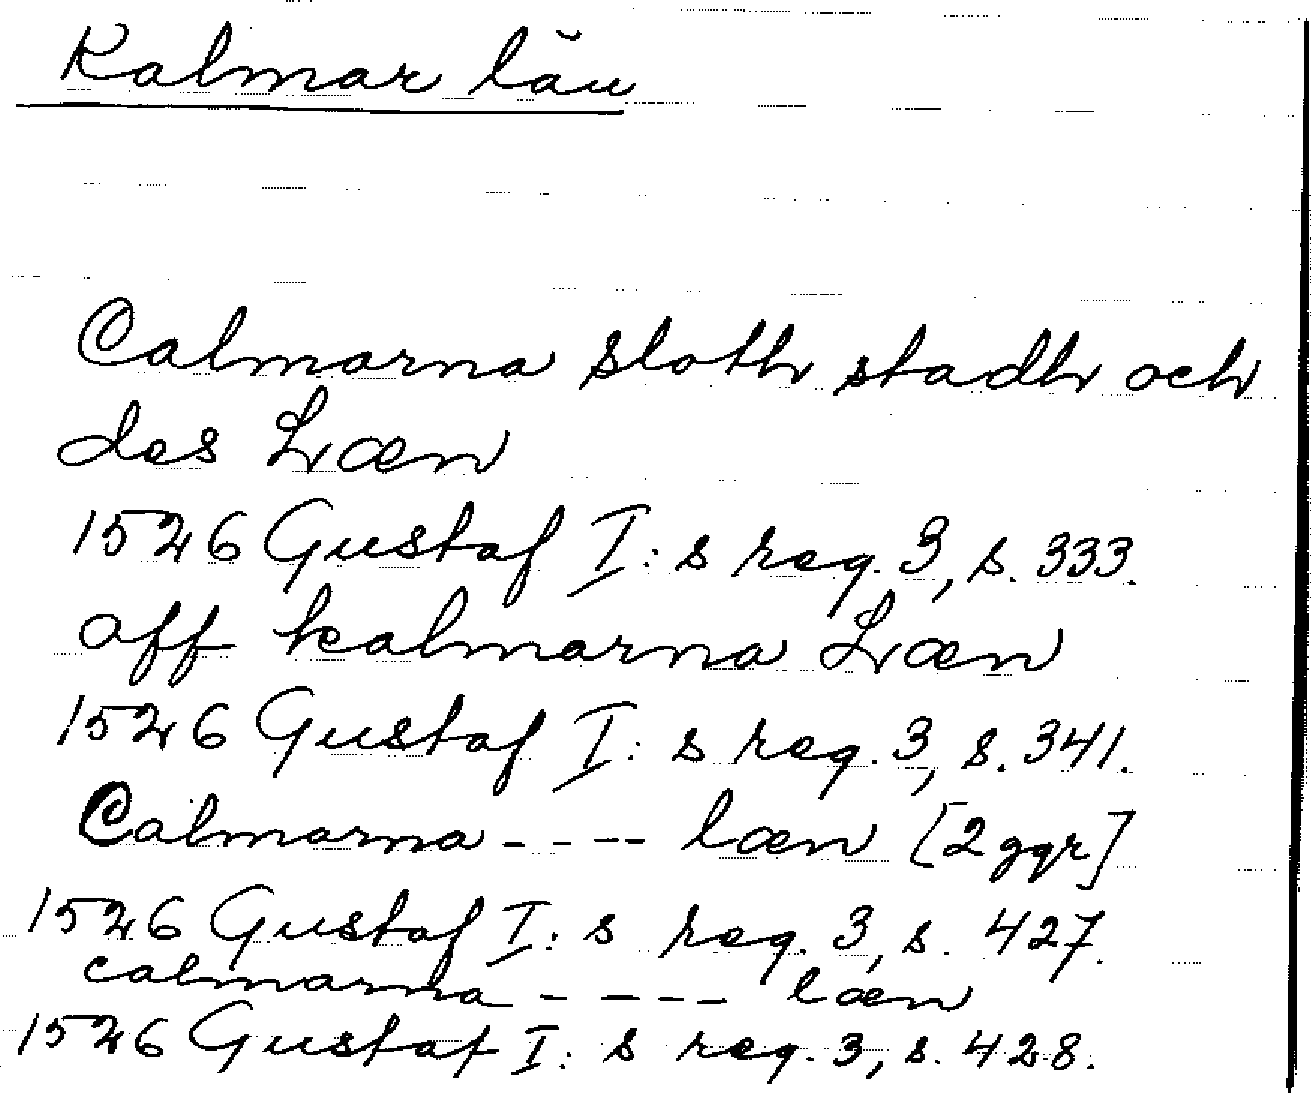 Kalmar län
Calmarna sloth stadh och
des Læn
1526 Gustaf I:s reg. 3, s. 333.
aff kalmarna Læn
1526 Gustaf I:s reg. 3, s. 341.
Calmarna ---- læn [2 ggr]
1526 Gustaf I:s reg. 3, s. 427.
calmarna ----- læn
1526 Gustaf I:s reg. 3, s. 428.